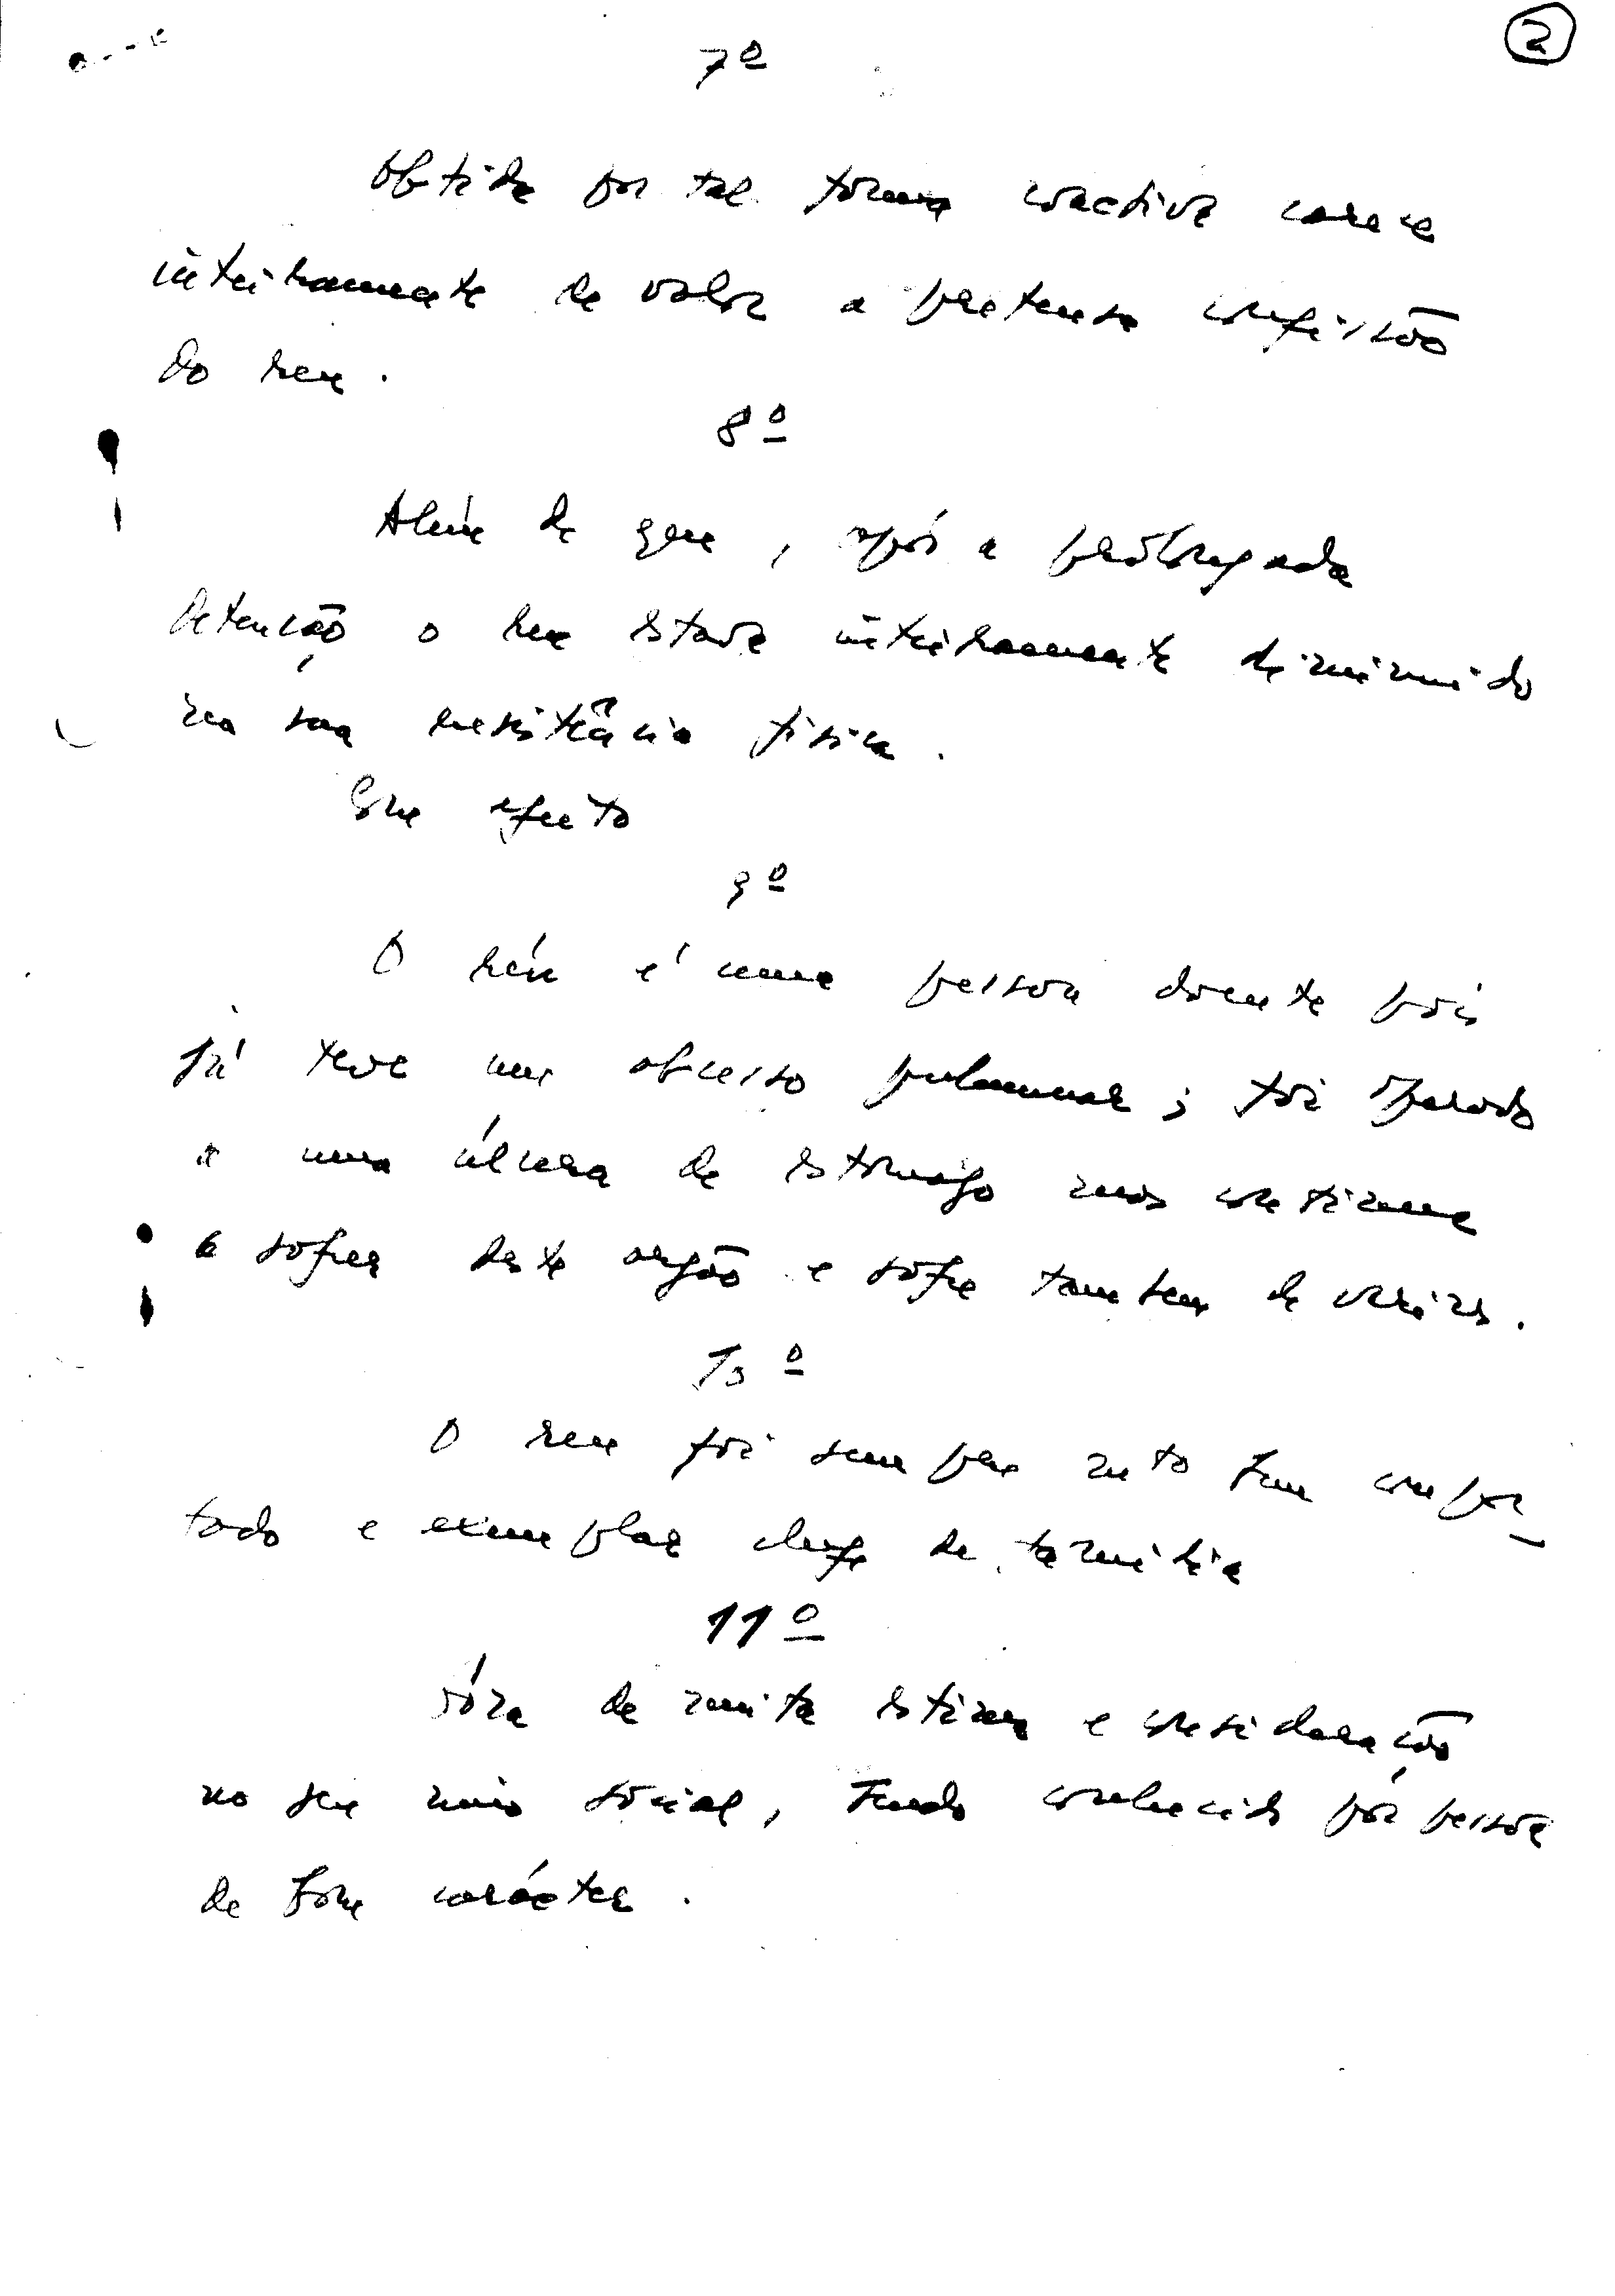 2
7º
Obtida por tal forma coactiva carece
inteiramente de valor a pretensa confissão
do reu.
8º
Além de que, após a prolongada
detenção o reu estava inteiramente diminuido
na sua resistência fisica.
Com efeito
9º
O réu é uma pessoa doente pois
já teve um abcesso pulmunar; foi operado
a uma úlcera de estomago mas continua
a sofrer deste orgão e sofre tambem de varizes.
10º
O reu foi sempre muito bem compor-
tado e exemplar chefe de familia
11º
Góza de muita estima e consideração
no seu meio social, sendo conhecido pór pessoa
de bom carácter.